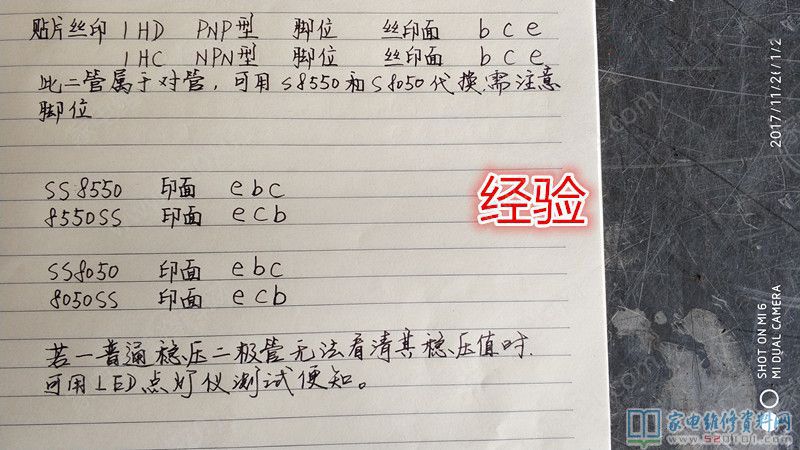 贴片丝印 1HD PNP型 脚位 丝印面 b c e
1HC NPN型 脚位 丝印面 b c e
此二管属于对管，可用S8550和S8050代换.需注意
脚位
SS8550 印面 e b c
8550SS 印面 e c b
经验
SS8050 印面 e b c
8050SS 印面 e c b
若一普通稳压二极管无法看清其稳压值时.
可用LED点灯仪测试便知。
2017/11/20/1/2
SHOT ON MI 6
MI DUAL CAMERA
家电维修资料网
www.520101.com